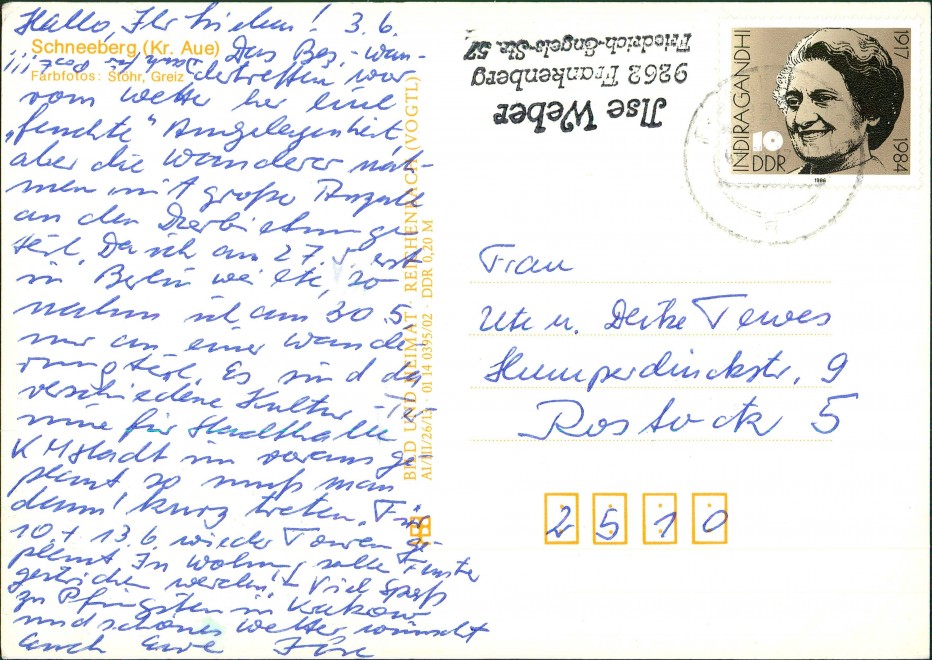 Hallo, Ihr Lieben! 3.6.
Schneeberg (Kr. Aue)
Farbfotos: Stöhr, Greiz
Das Bez.-wan-
dertreffen war
vom Wetter her eine
„feuchte" Angelegenheit
aber die Wanderer nah-
men in großer Anzahl
an den Darbietungen
teil. Da ich am 27.5. erst
in Berlin weilte, so
nahm ich am 30.5.
nur an einer Wande-
rung teil. Es sind da
verschiedene Kultur-Ter-
mine für Stadthalle
KMStadt im voraus ge-
plant so muß man
dann kurz treten. Für
10. + 13.6. wieder Touren ge-
plant. In Wohng. solle Fenster
gestrichen werden! Viel Spaß
zu Pfingsten in Krakow
und schönes Wetter wünscht
Euch Eure Ilse
BILD UND HEIMAT · REICHENBACH (VOGTL)
A1/III/26/13 · 01 14 0395/02 · DDR 0,20 M
Ilse Weber
9262 Frankenberg
Friedrich-Engels-Str. 57
INDIRA GANDHI
1917
1984
10
DDR
1986
Frau
Ute u. Dörte Tewes
Humperdinckstr. 9
Rostock 5
2510